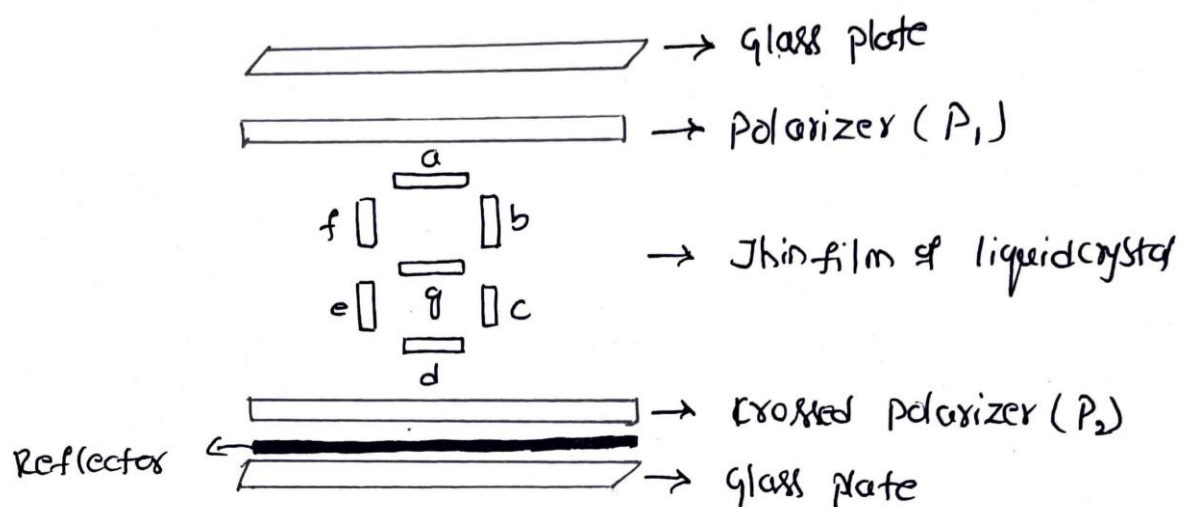 → Glass plate
→ Polarizer (P₁)
a
f
b
→ Thin film of liquid crystal
g
e
c
d
→ Crossed Polarizer (P₂)
Reflector
→ Glass plate